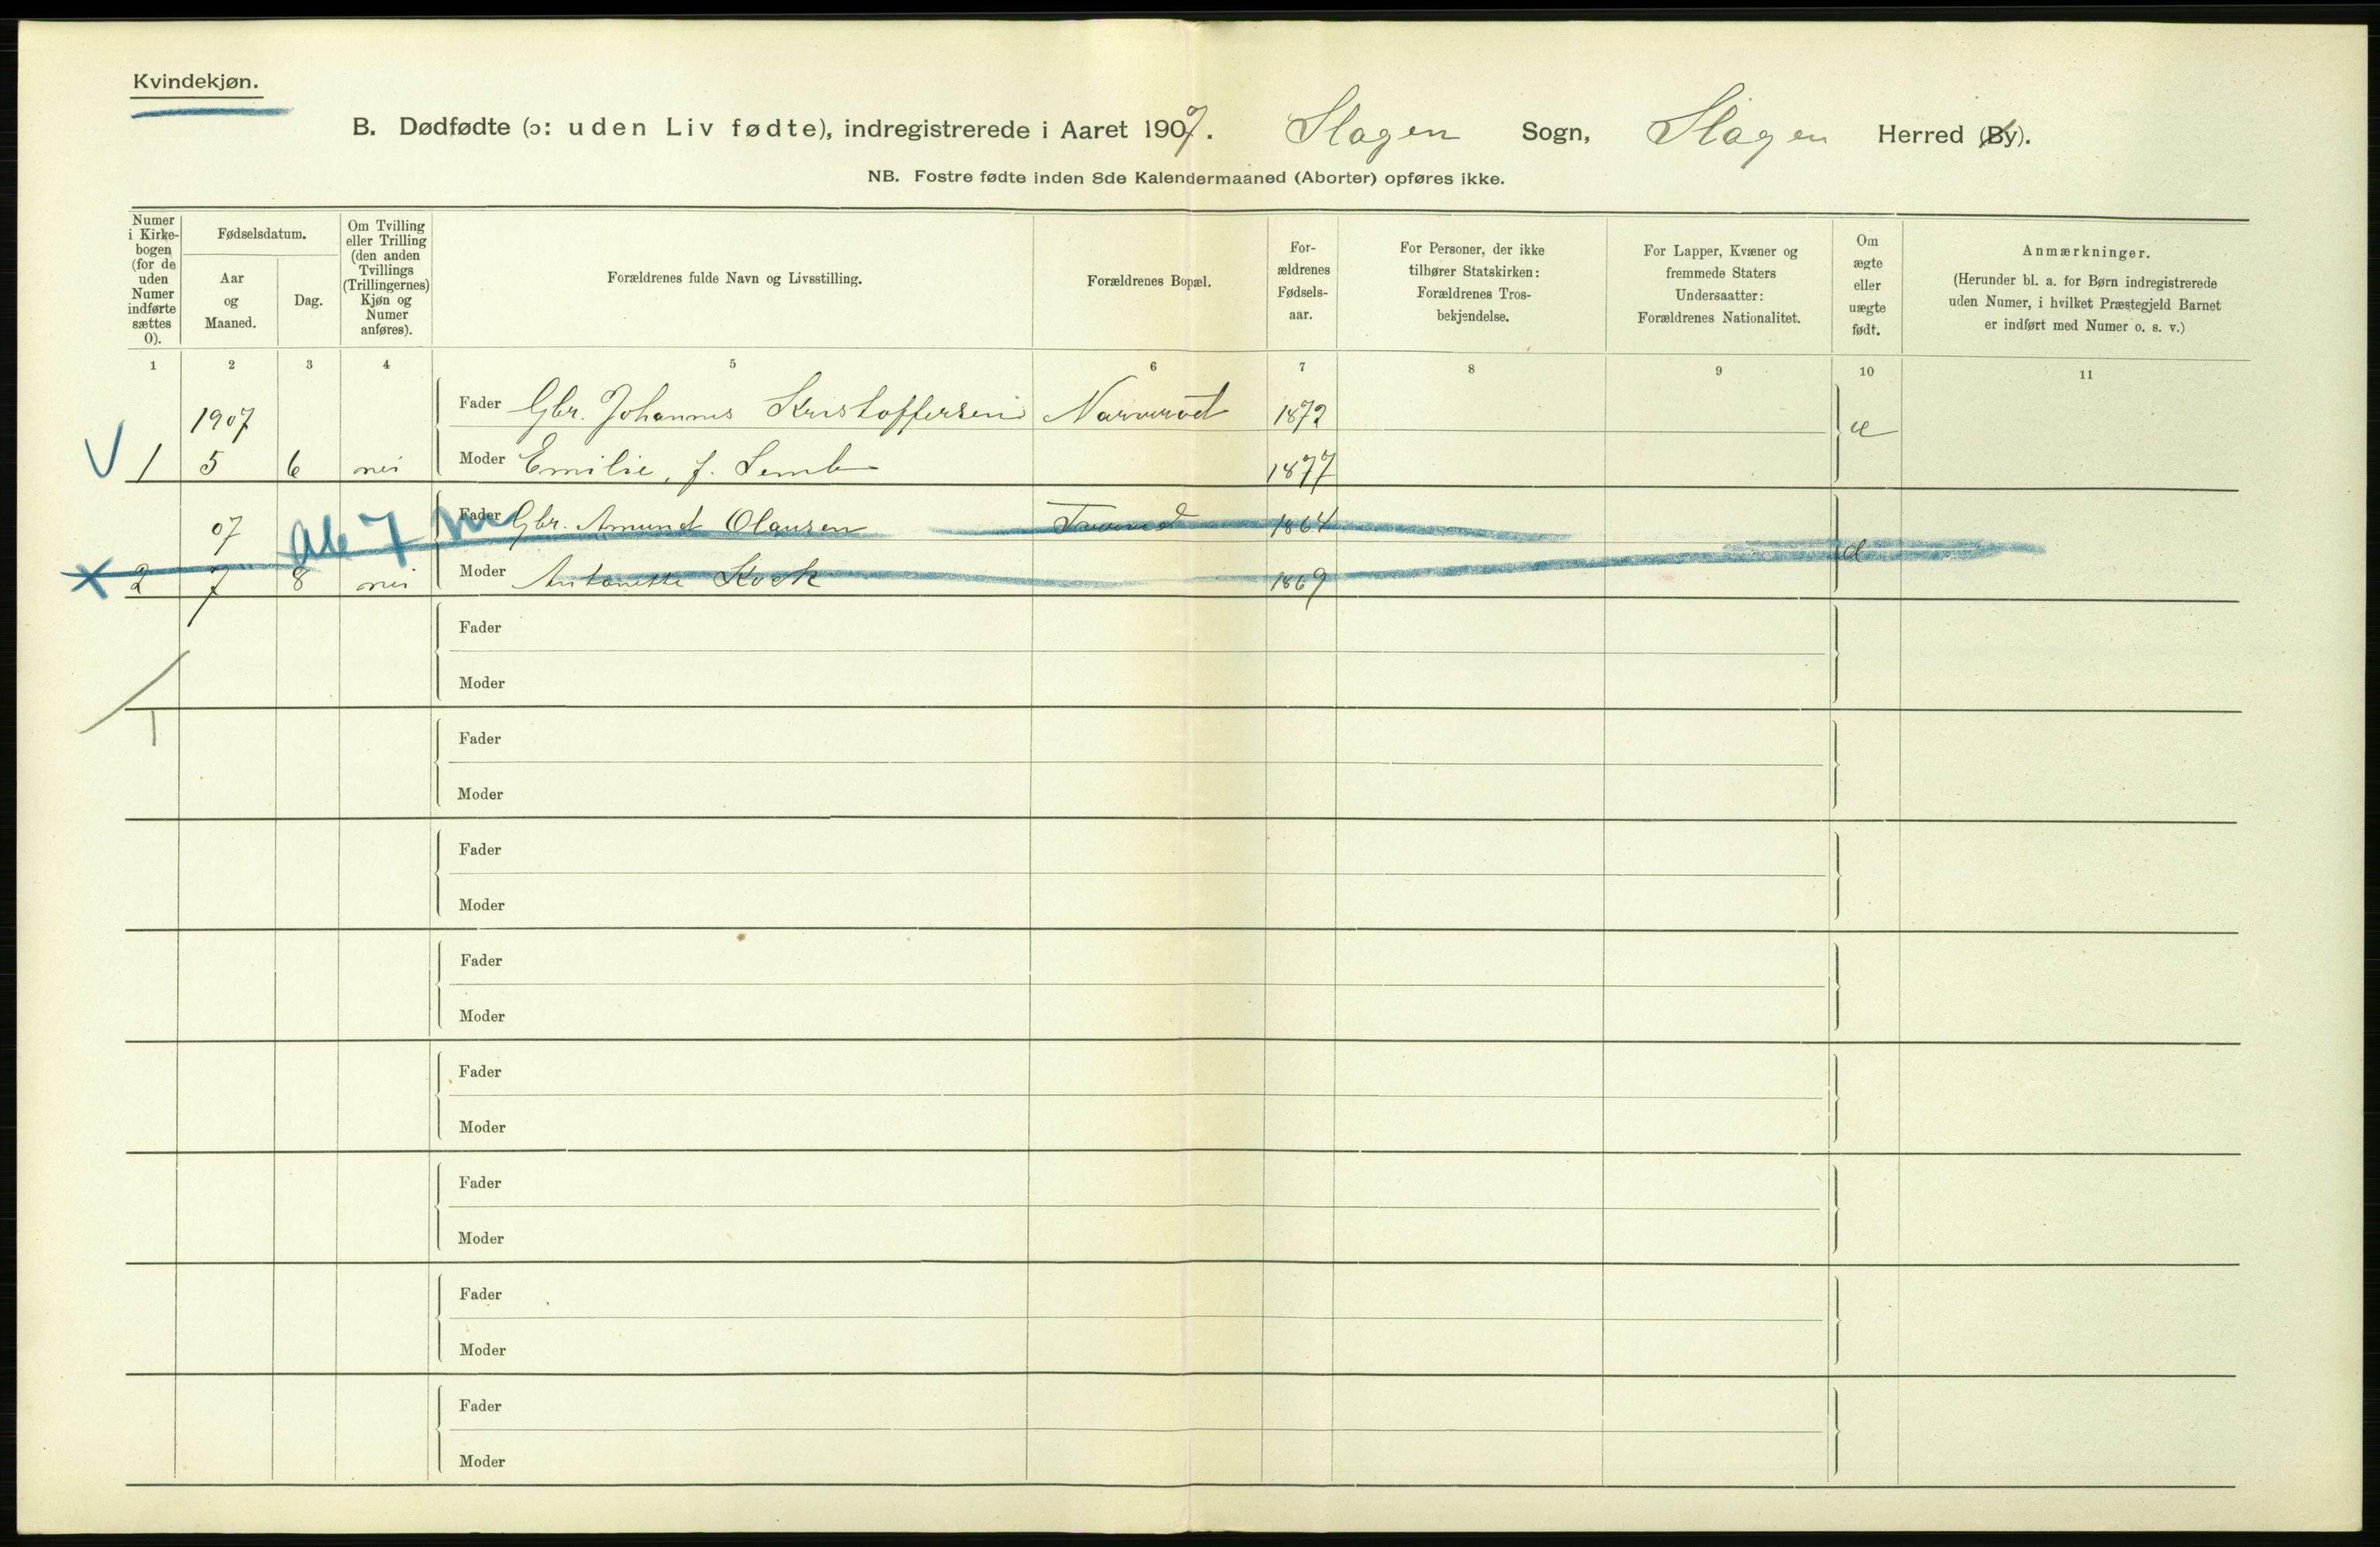 Kvindekjøn.
B. Dødfødte (ɔ: uden Liv fødte), indregistrerede i Aaret 1907. Slagen Sogn, Slagen Herred (By).
NB. Fostre fødte inden 8de Kalendermaaned (Aborter) opføres ikke.
Numer i Kirke-bogen (for de uden Numer indførte sættes 0).
Fødselsdatum.
Aar og Maaned.
Dag.
Om Tvilling eller Trilling (den anden Tvillings (Trillingernes) Kjøn og Numer anføres).
Forældrenes fulde Navn og Livsstilling.
Forældrenes Bopæl.
For-ældrenes Fødsels-aar.
For Personer, der ikke tilhører Statskirken: Forældrenes Tros-bekjendelse.
For Lapper, Kvæner og fremmede Staters Undersaatter: Forældrenes Nationalitet.
Om ægte eller uægte født.
Anmærkninger.
(Herunder bl. a. for Børn indregistrerede uden Numer, i hvilket Præstegjeld Barnet er indført med Numer o. s. v.)
1 2 3 4 5 6 7 8 9 10 11
1907 Fader Gbr. Johannes Kristoffersen Narverød 1872
1 5 6 nei Moder Emilie, f. Semb 1877
07 Ab 7 m Fader Gbr. Amund Olausen 1864
2 7 8 nei Moder Antonette Kock 1869
Fader
Moder
Fader
Moder
Fader
Moder
Fader
Moder
Fader
Moder
Fader
Moder
Fader
Moder
Fader
Moder